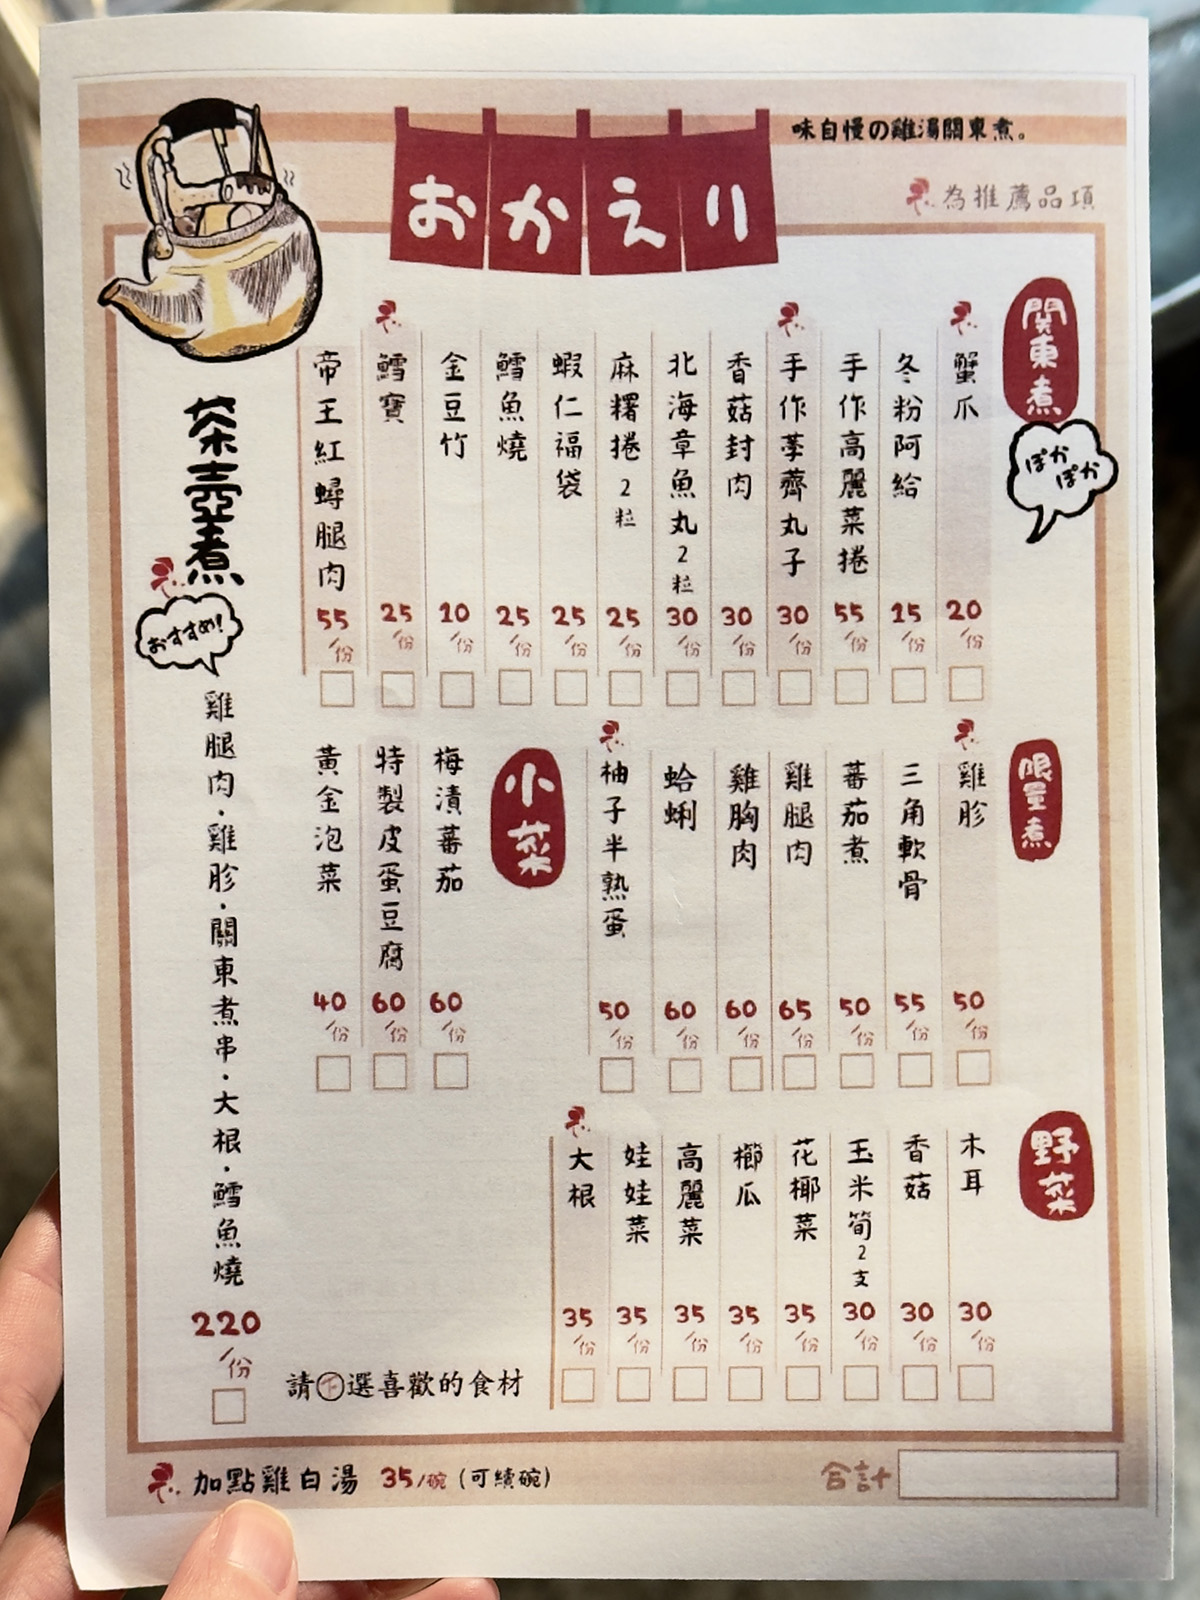 おかえり
味自慢の雞湯關東煮。
為推薦品項
関東煮
ぽかぽか
蟹爪 20/份
冬粉阿給 15/份
手作高麗菜捲 55/份
手作荸薺丸子 30/份
香菇封肉 30/份
北海章魚丸2粒 30/份
麻糬捲2粒 25/份
蝦仁福袋 25/份
鱈魚燒 25/份
金豆竹 10/份
鱈寶 25/份
帝王紅蟳腿肉 55/份
限量煮
雞胗 50/份
三角軟骨 55/份
蕃茄煮 50/份
雞腿肉 65/份
雞胸肉 60/份
蛤蜊 60/份
柚子半熟蛋 50/份
小菜
梅漬蕃茄 60/份
特製皮蛋豆腐 60/份
黃金泡菜 40/份
野菜
木耳 30/份
香菇 30/份
玉米筍2支 30/份
花椰菜 35/份
櫛瓜 35/份
高麗菜 35/份
娃娃菜 35/份
大根 35/份
茶壺煮
おすすめ!
雞腿肉·雞胗·關東煮串·大根·鱈魚燒
220/份
請選喜歡的食材
加點雞白湯 35/碗 (可續碗)
合計